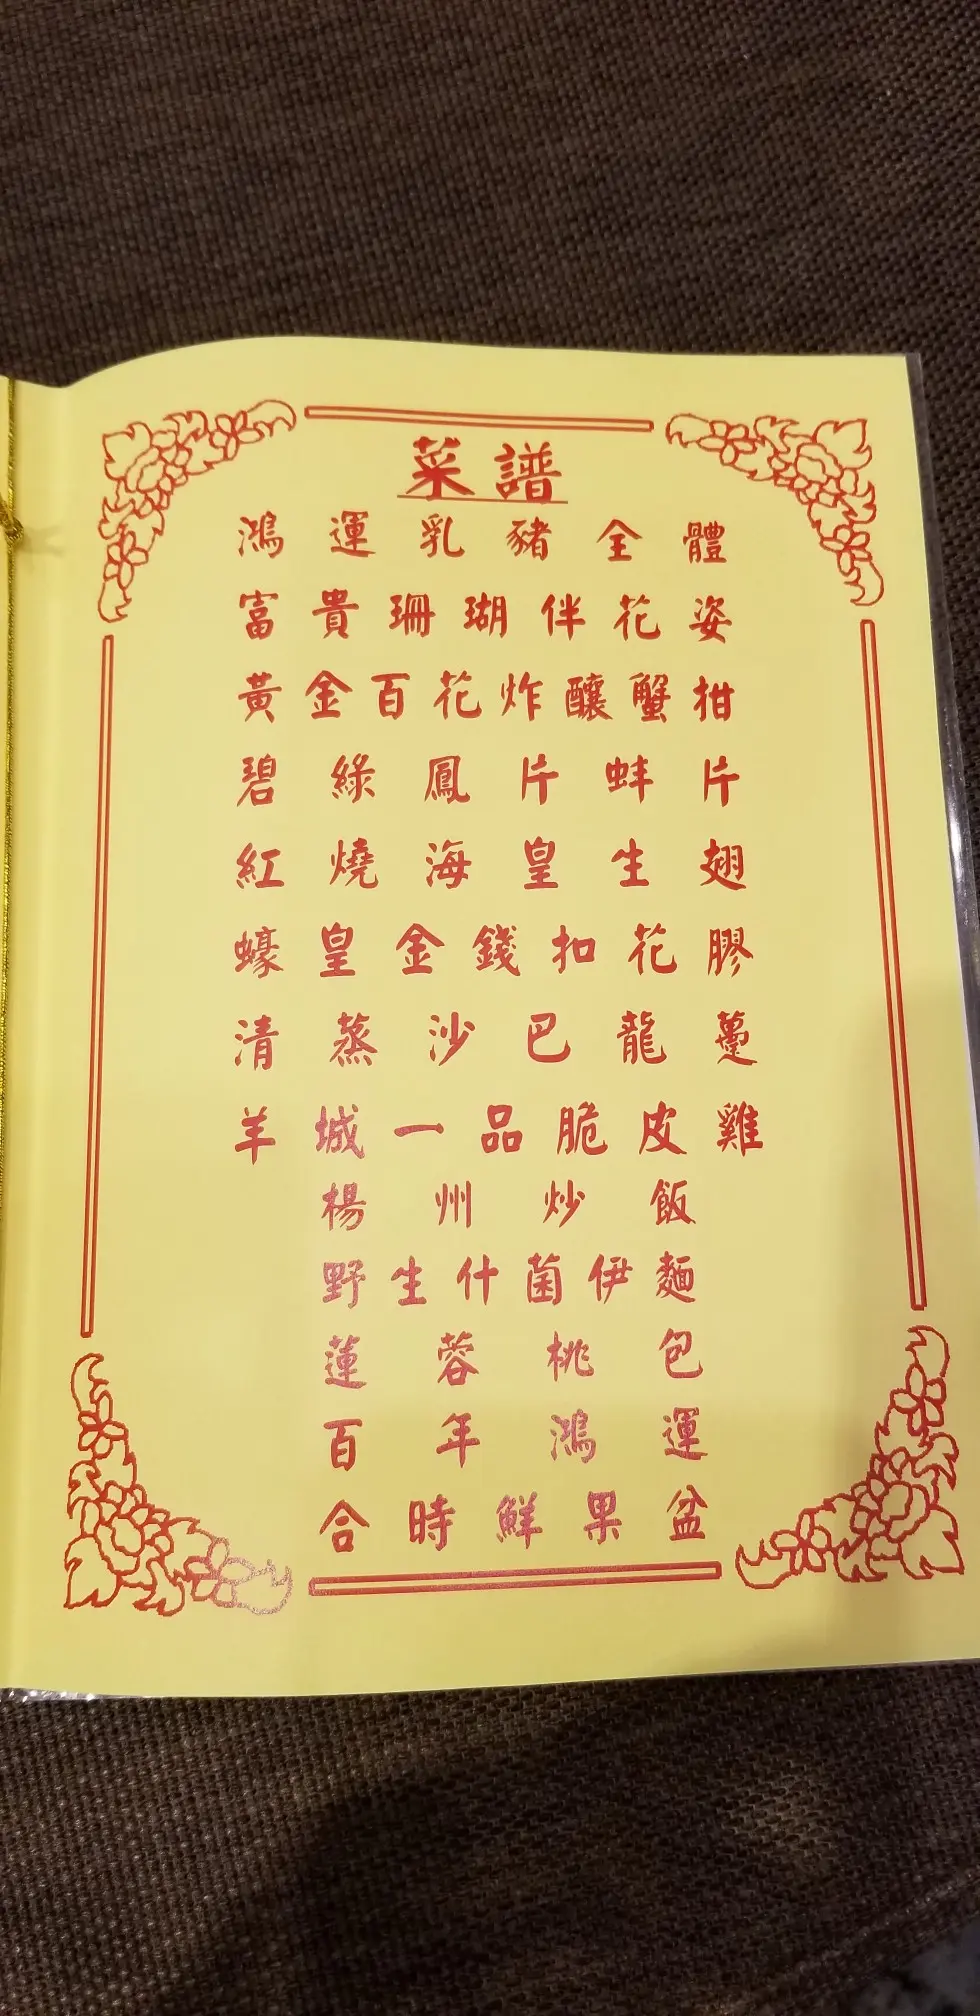 菜譜
鴻運乳豬全體
富貴珊瑚伴花姿
黃金百花炸釀蟹柑
碧綠鳳片蚌片
紅燒海皇生翅
蠔皇金錢扣花膠
清蒸沙巴龍躉
羊城一品脆皮雞
楊州炒飯
野生什菌伊麵
蓮蓉桃包
百年鴻運
合時鮮果盆